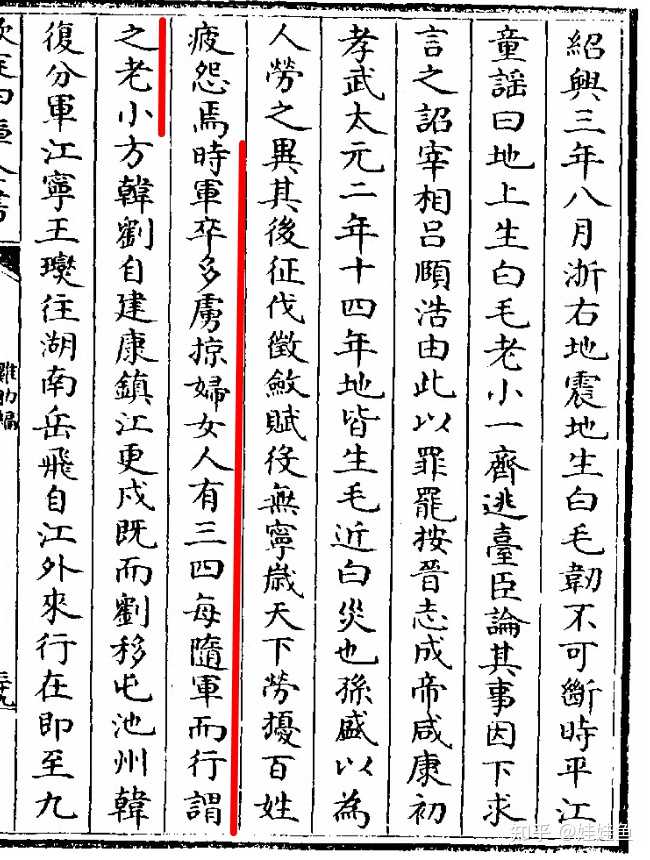 紹興三年八月浙右地震地生白毛韌不可斷時平江
童謡曰地上生白毛老小一齊逃臺臣論其事因下求
言之詔宰相吕頤浩由此以罪罷按晉志成帝咸康初
孝武太元二年十四年地皆生毛近白災也孫盛以為
人勞之異其後征伐徵斂賦役無寧歲天下勞擾百姓
疲怨焉時軍卒多虜掠婦女人有三四每隨軍而行謂
之老小方韓劉自建康鎮江更戍既而劉移屯池州韓
復分軍江寧王𤫉往湖南岳飛自江外來行在即至九
欽定四庫全書
雞肋編
三十九
知乎 @娃娃魚